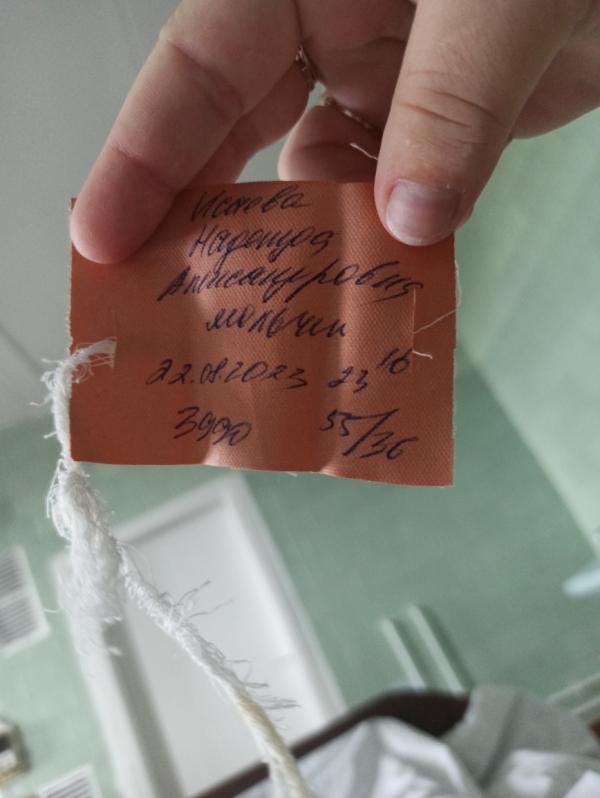 Исаева
Надежда
Александровна
мальчик
22.08.2023 23 16
3990 55/36